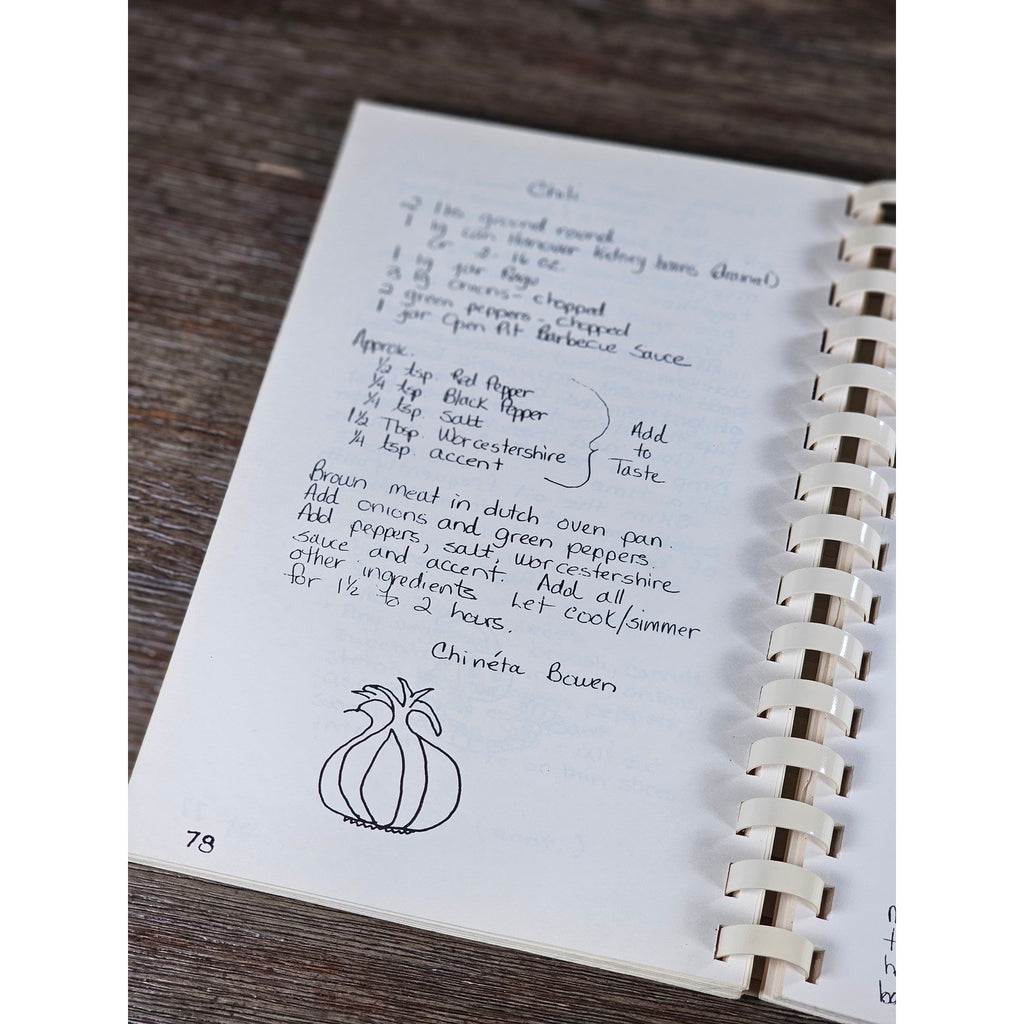 Chili
2 lbs ground round
1 lg can Hanover Kidney beans (drained)
or 2 - 16 oz.
1 lg jar Ragu
3 lg onions - chopped
2 green peppers - chopped
1 jar Open Pit Barbecue Sauce
Approx.
1/2 tsp. Red Pepper
1/4 tsp Black Pepper
1/4 tsp. Salt
1 1/2 Tbsp. Worcestershire
1/4 tsp. accent
Add
to
Taste
Brown meat in dutch oven pan.
Add onions and green peppers.
Add peppers, salt, worcestershire
sauce and accent. Add all
other ingredients. Let cook/simmer
for 1 1/2 to 2 hours.
Chinéta Bowen
78